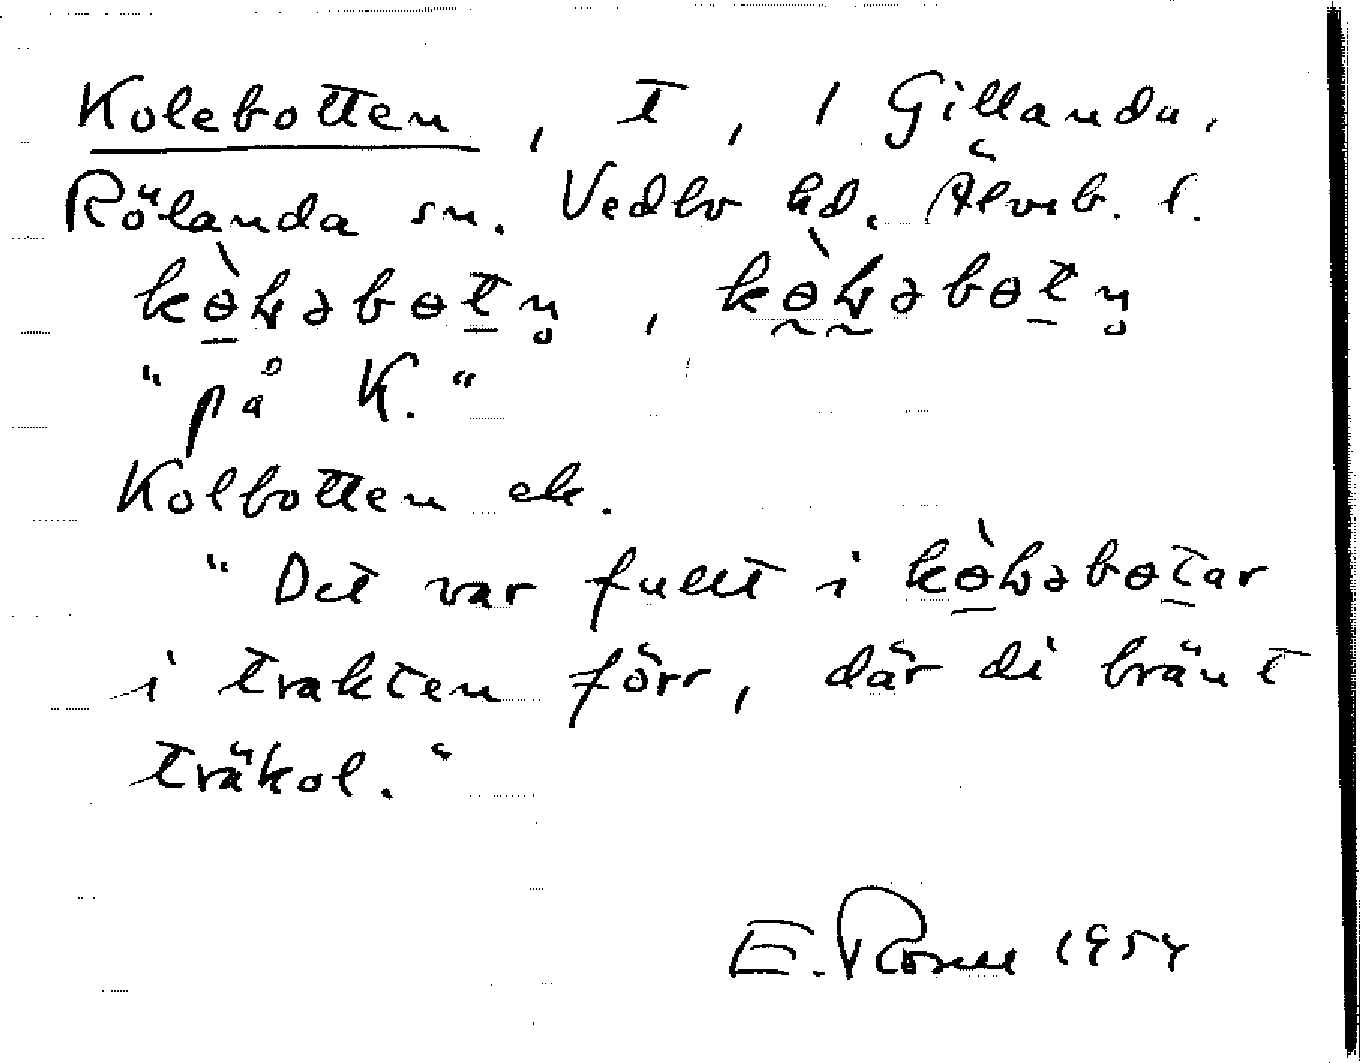 Kolebotten, T, 1 Gillanda,
Rölanda sn. Vedbo hd. Älvsb. l.
"på K."
Kolbotten ek.
"Det var fullt i
i trakten förr, där di bränt
träkol."
E. 1954